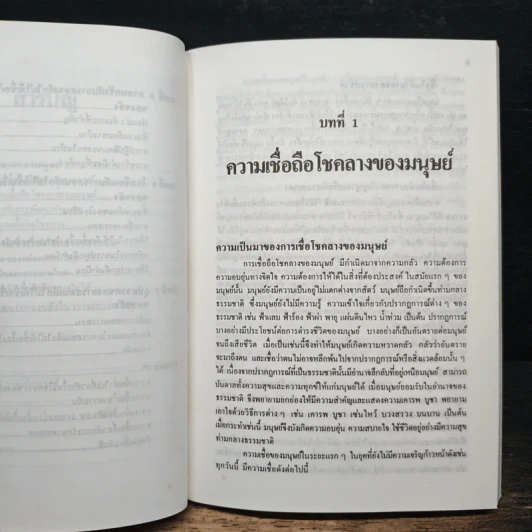 บทที่ 1
ความเชื่อถือโชคลางของมนุษย์
ความเป็นมาของการเชื่อโชคลางของมนุษย์
การเชื่อถือโชคลางของมนุษย์ มีกำเนิดมาจากความกลัว ความต้องการ
ความอบอุ่นทางจิตใจ ความต้องการให้ได้ในสิ่งที่ต้องประสงค์ ในสมัยแรก ๆ ของ
มนุษย์นั้น มนุษย์ยังมีความเป็นอยู่ไม่แตกต่างจากสัตว์ มนุษย์ถือกำเนิดขึ้นท่ามกลาง
ธรรมชาติ ซึ่งมนุษย์ยังไม่มีความรู้ ความเข้าใจเกี่ยวกับปรากฏการณ์ต่าง ๆ ของ
ธรรมชาติ เช่น ฟ้าแลบ ฟ้าร้อง ฟ้าผ่า พายุ แผ่นดินไหว น้ำท่วม เป็นต้น ปรากฏการณ์
บางอย่างมีประโยชน์ต่อการดำรงชีวิตของมนุษย์ บางอย่างก็เป็นอันตรายต่อมนุษย์
จนถึงเสียชีวิต เมื่อเป็นเช่นนี้จึงทำให้มนุษย์เกิดความหวาดกลัว กลัวว่าอันตราย
จะมาถึงตน และเชื่อว่าตนไม่อาจหลีกพ้นไปจากปรากฏการณ์หรือสิ่งแวดล้อมนั้น ๆ
ได้ เนื่องจากปรากฏการณ์ที่เป็นธรรมชาตินั้นมีอำนาจลึกลับที่อยู่เหนือมนุษย์ สามารถ
บันดาลทั้งความสุขและความทุกข์ให้แก่มนุษย์ได้ เมื่อมนุษย์ยอมรับในอำนาจของ
ธรรมชาติ จึงพยายามยกย่องให้มีความสำคัญและแสดงความเคารพ บูชา พยายาม
เอาใจด้วยวิธีการต่าง ๆ เช่น เคารพ บูชา เซ่นไหว้ บวงสรวง บนบาน เป็นต้น
เมื่อกระทำเช่นนี้ มนุษย์จึงบังเกิดความอบอุ่น ความสบายใจ ใช้ชีวิตอยู่อย่างมีความสุข
ท่ามกลางธรรมชาติ
ความเชื่อของมนุษย์ในระยะแรก ๆ ในยุคที่ยังไม่มีความเจริญก้าวหน้าดังเช่น
ทุกวันนี้ มีความเชื่อดังต่อไปนี้